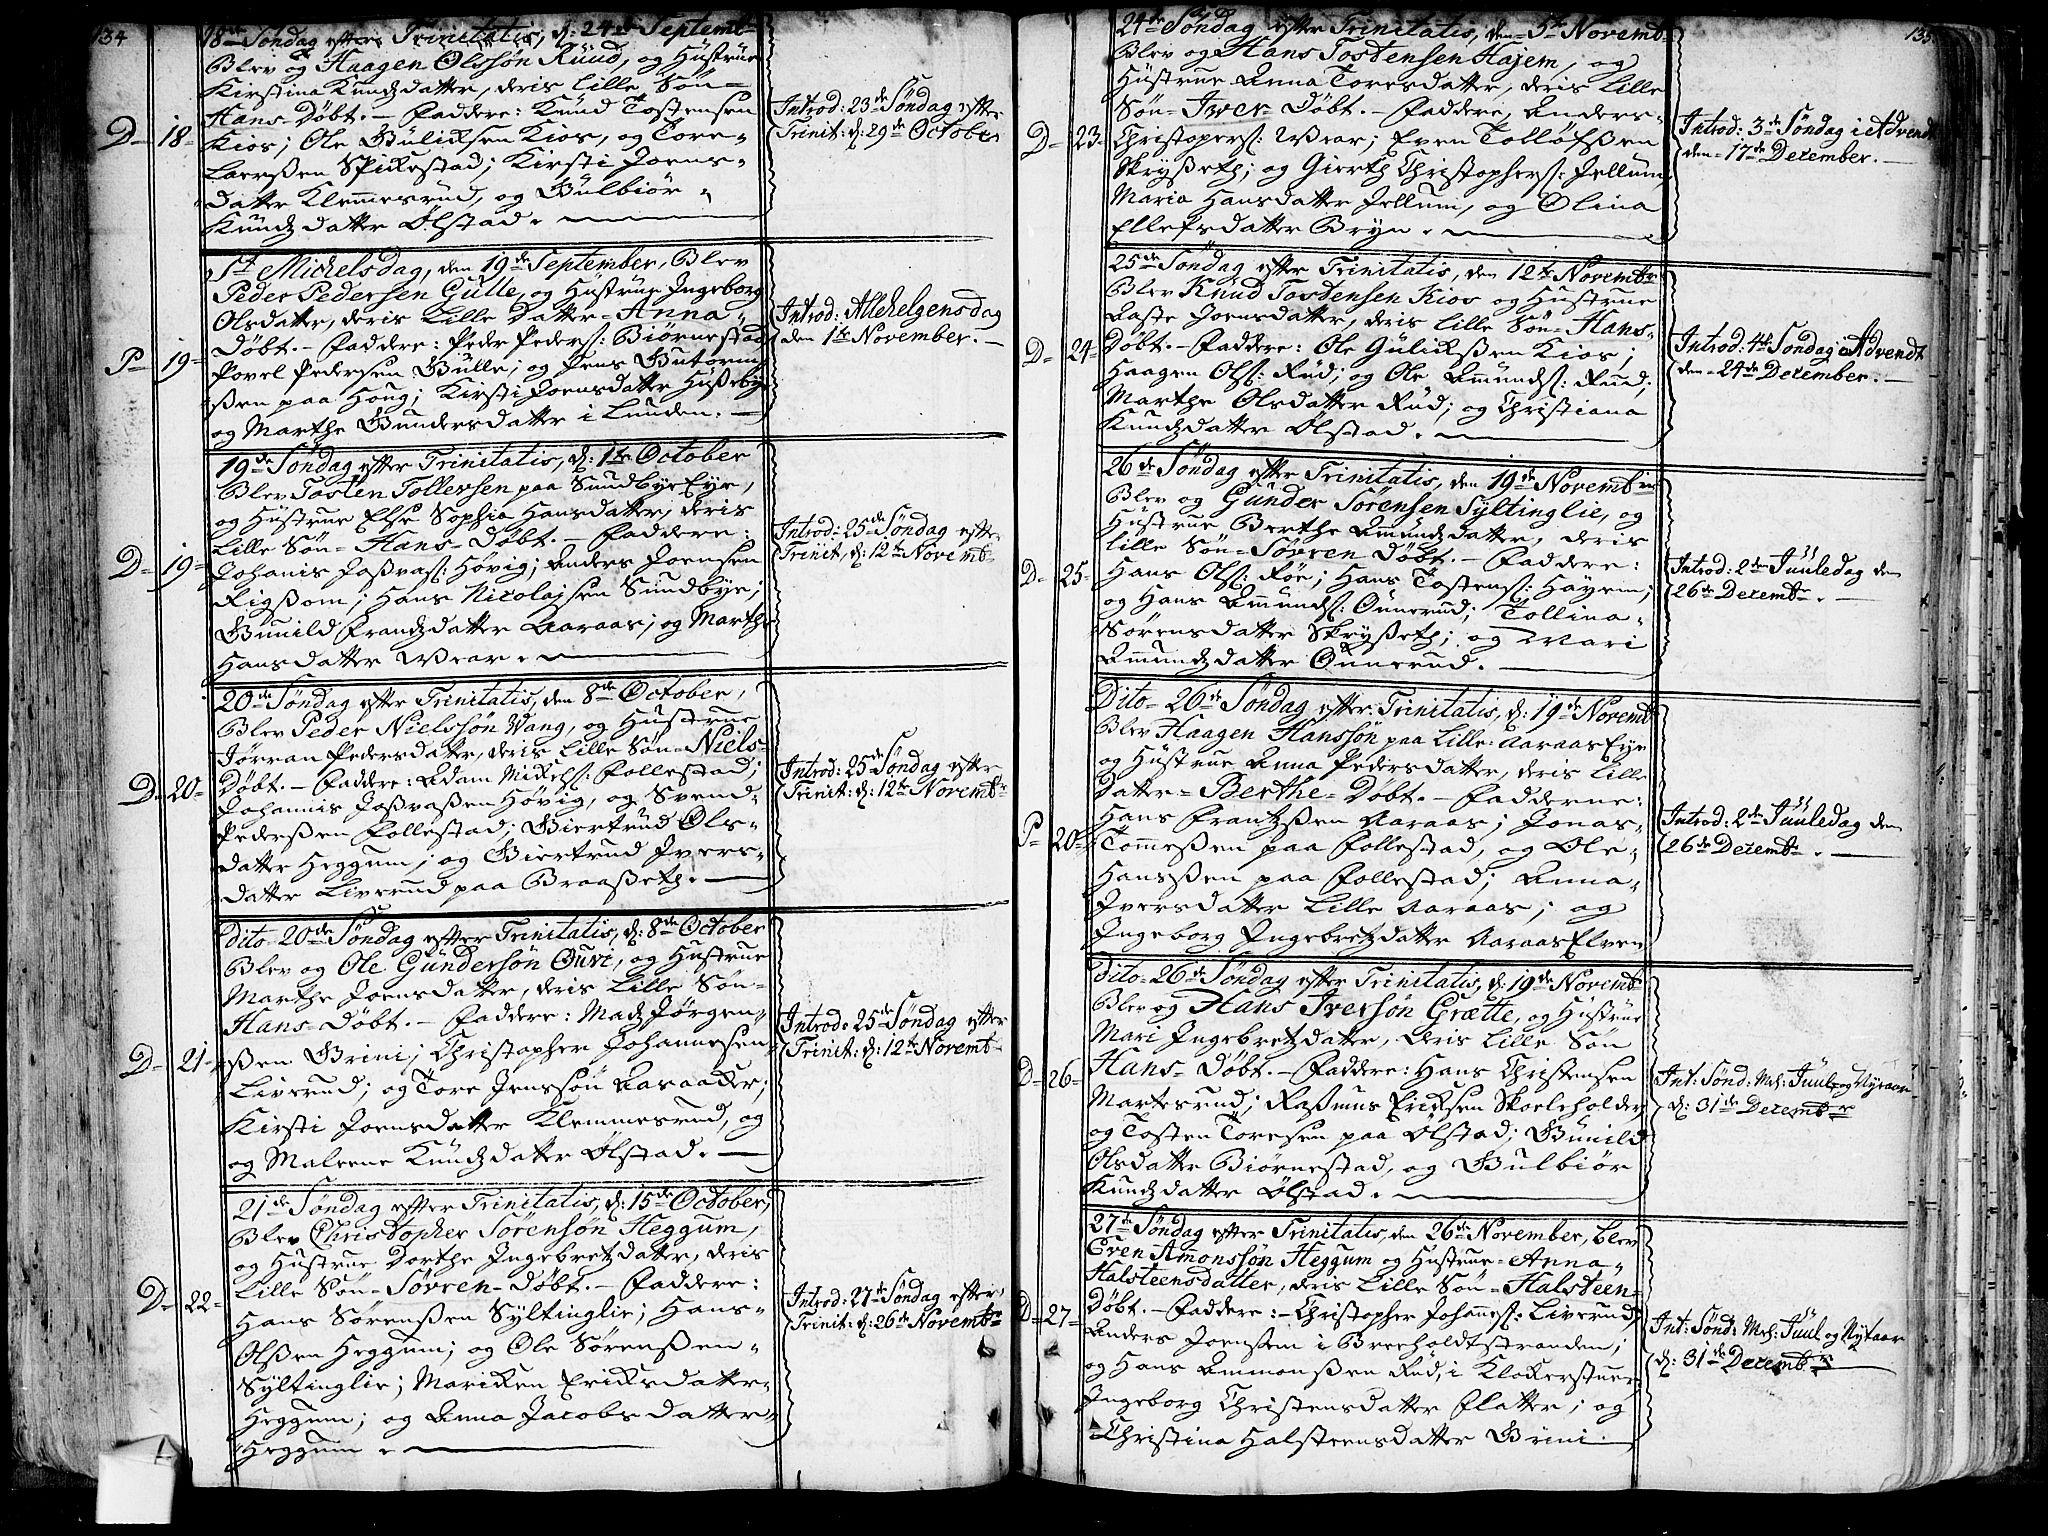 134
18de Søndag efter Trinitatis, d: 24de Septembr
Blev og Haagen Olssön Rüüd, og Hüstrue
Kirstina Knudsdatter, deris Lille Søn=
Hans= Döbt. - Faddere: Knud Tostensen
Kios; Ole Gulichsen Kios, og Tore=
Larsßen Spikestad; Kirsti Joens=
datter Klemmesrud, og Gulbiør
Knudsdatter Ølstad.
D= 18=
Introd: 23de Søndag efter
Trinit: d: 29de October
St Michelsdag, den 19de September, Blev
Peder Pedersen Gülle, og Hüstrue Ingeborg
Olsdatter, deris Lille Datter= Anna=
Döbt. - Faddere: Peder Peders: Biørnestad
Povel Pedersen Gülle; og Jens Guttorm=
ßen paa Houg; Kirsti Joensdatter Hüßeby
og Marthe Gundersdatter i Lunden.
P= 19=
Introd: Allehelgensdag
den 1ste November.
19de Søndag efter Trinitatis, d: 1ste October
Blev Tosten Tollevsen paa Sundbye Eye,
og Hüstrue Else Sophia Hansdatter, deris
Lille Søn= Hans= Döbt. - Faddere:
Johanis Joßvas: Høvig; Anders Joensen
Rigßom; Hans Nicolajsen Sundbye;
Gunild Frandsdatter Aaraas; og Marthe
Hansdatter Wear.
D= 19=
Introd: 25de Søndag efter
Trinit, d: 12te Novembr
20de Søndag efter Trinitatis, den 8de October,
Blev Peder Nielssön Wang, og Hüstrue
Jörran Pedersdatter, deris Lille Søn= Niels=
Döbt. - Faddere: Adam Mickels: Follestad;
Johannis Joßvaßen Høvig, og Svend=
Pederßen Follestad; Giertrud Ols=
datter Heggum; og Giertrud Ivers=
datter Liverud paa Braaßeth.
D= 20=
Introd: 25de Søndag efter
Trinit: d: 12te Novembr
Dito= 20de Søndag efter Trinitatis, d: 8de October
Blev og Ole Gündersön Ouri, og Hüstrue
Marthe Joensdatter, deris Lille Søn=
Hans= Döbt. - Faddere: Mads Jørgen=
ßen Brini; Christopher Johannesen
Liverud; og Tore Jenssön Aaraaker;
Kirsti Joensdatter Klemmesrud, og
og Maleene Knudsdatter Ølstad.
D= 21=
Introd: 25de Søndag efter
Trinit: d: 12te Novembr
21de Søndag efter Trinitatis, d: 15de October,
Blev Christopher Sörensön Heggum,
og Hüstrue Dorthe Ingebretsdatter, deris
Lille Søn= Sörren= Döbt. - Faddere:
Hans Sørenßen Syltinglie; Hans=
Olßen Heggum; og Ole Sørenßen=
Syltinglie; Mariken Eriksdatter=
Heggum; og Anna Jacobsdatter=
Heggum.
D= 22=
Introd: 27de Søndag efter
Trinit: d: 26de Novembr
135
24de Søndag efter Trinitatis, den= 5te Novembr
Blev og Hans Tostensen Hajem, og
Hüstrue Anna Toresdatter, deris Lille
Søn= Iver= Döbt. - Faddere, Anders=
Christophers: Wear; Even Tolløfßen
Skryßeth; og Gierth Christophers: Jellum
Maria Hansdatter Jellum, og Olina
Ellefsdatter Bryn.
D= 23=
Introd: 3de Søndag i Advent
den= 17de December.
25de Søndag efter Trinitatis, den 12te Novembr
Blev Knud Tostensen Kios og Hüstrue
Aaste Joensdatter, deris Lille Søn= Hans=
Döbt. - Faddere: Ole Gulickßen Kios;
Haagen Ols: Rud; og Ole Amunds: Ruud;
Marthe Olsdatter Rud; og Christiana
Knudsdatter Ølstad.
D= 24=
Introd: 4de Søndag i Advent
den= 24de December.
26de Søndag efter Trinitatis, den 19de Novembr
Blev og Günder Sörensen Syltinglie, og
Hüstrue Berthe Amundsdatter, deris
lille Søn= Sövren Döbt. - Faddere:
Hans Ols: Røe; Hans Tostens: Hayem;
og Hans Amunds: Ounerud; Tollina=
Sørensdatter Skryßeth; og Mari
Amundsdatter Ounerud.
D= 25=
Introd: 2den Juuledag den
26de Decembr.
Dito= 26de Søndag efter Trinitatis, d: 19de Novembr
Blev Haagen Hanssön paa Lille Aaraas Eye
og Hüstrue Anna Pedersdatter, deris Lille
Datter= Berthe= Döbt. - Fadderne:
Hans Frantzßen Aaraas; Jonas=
Tommeßen paa Follestad, og Ole=
Hansßen paa Follestad; Anna=
Iversdatter Lille Aaraas; og
Ingeborg Ingebretsdatter Aaraas Elven
P= 20=
Introd: 2den Juuledag den
26de Decembr.
Dito= 26de Søndag efter Trinitatis, d: 19de Novembr
Blev og Hans Iversön Grætte, og Hüstrue
Mari Ingebretsdatter, deris Lille Søn
Hans= Döbt. - Faddere: Hans Christensen
Martesrud; Raßmus Ericksen Skoleholder,
og Tosten Toresen paa Ølstad; Gunild
Olsdatter Biørnestad, og Gulbiør
Knudsdatter Ølstad.
D= 26=
Int: Sønd: Mel: Juul og Nytaar
d: 31de Decembr
27de Søndag efter Trinitatis, den 26de November, blev
Even Amonssön Heggum og Hüstrue= Anna=
Halsteensdatter, deris Lille Søn= Halsteen=
Döbt. - Faddere: - Christopher Johannes: Liverud;
Anders Joensen i Breeholdtstranden;
og Hans Ammonßen Rud, i Klokerstuen
Ingeborg Christensdatter Flatter; og
Christina Halsteensdatter Brini.
D= 27=
Int: Sønd: Mel: Juul og Nytaar
d: 31de Decembr